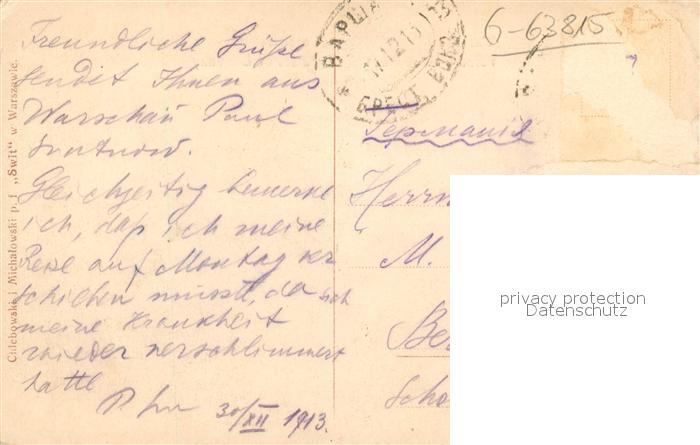 Freundliche Grüße
sendet Ihnen aus
Warschau Paul
Gleichzeitig bemerke
ich, daß ich meine
Reise auf Montag ver
schieben musste, da sich
meine Krankheit
wieder verschlimmert
hatte
30/XII 1913.
Chlebowski i Michałowski p. f. „Świt" w Warszawie.
ВАРША
БРЕСТ
6-63815
Германія
Herrn
M.
Be
Scho
privacy protection
Datenschutz